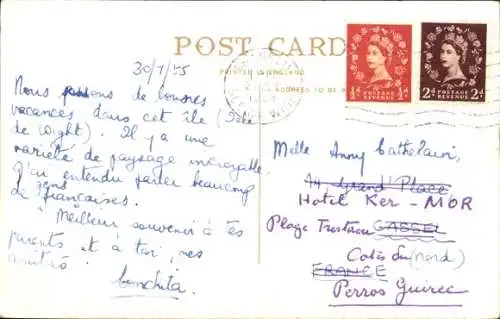 POST CARD
PRINTED IN ENGLAND
ADDRESS TO BE
½d POSTAGE REVENUE ½d
2d POSTAGE REVENUE 2d
30/7/55
Nous de Londres
vacances dans cet île (Isle
de Wight). Il y a une
variété de paysage incroyable.
J'ai entendu parler beaucoup
de gens françaises.
Meilleur souvenir à tes
parents et à toi, mes
amitiés
Conchita
Melle Anny Cathelain,
14, Grand'Place
Hotel Ker-MOR
Plage Trestraou CASSEL
Cotes du (Nord)
FRANCE
Perros Guirec